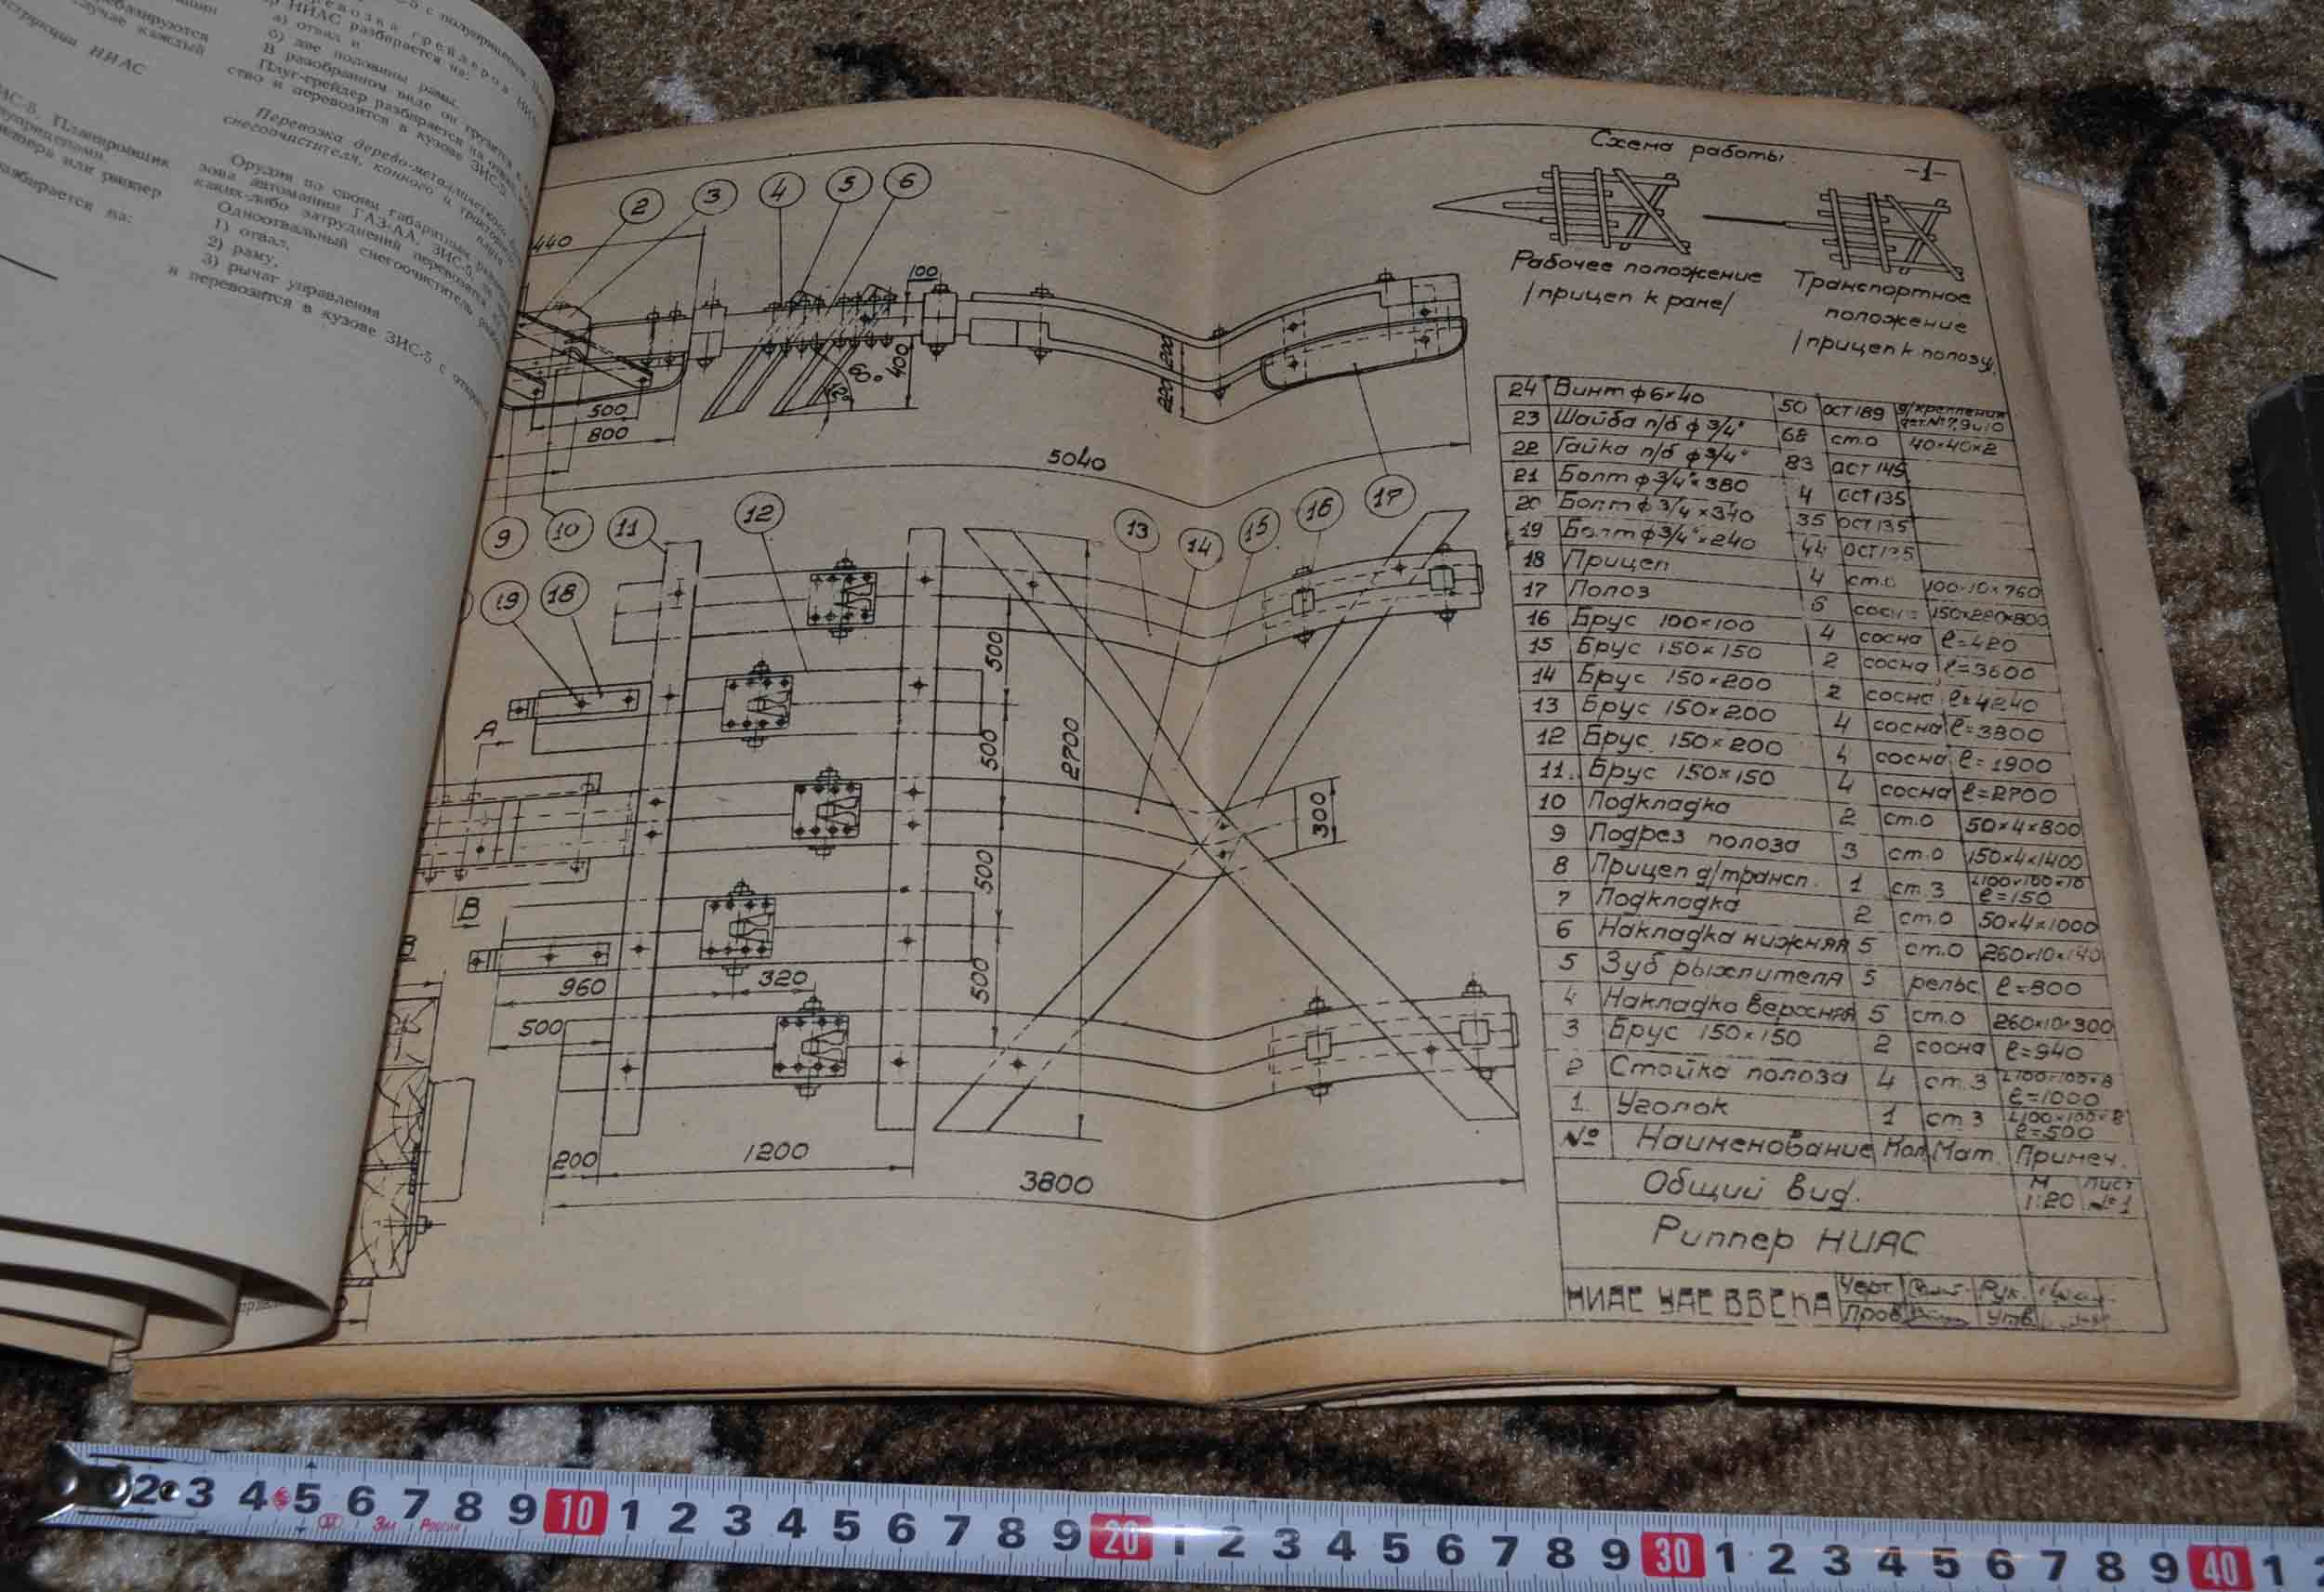 с полуприцепом.
перевозка грейдера НИАС
НИАС разбирается на:
а) отвал и
б) две половины рамы.
В разобранном виде он грузится в
Плуг-грейдер разбирается на
ство и перевозится в кузове ЗИС-5
Перевозка дерево-металлического
снегоочистителя, конного и тракторного
Орудия по своим габаритным
зова автомашин ГАЗ-АА, ЗИС-5
каких-либо затруднений перевозятся
Одноотвальный снегоочиститель
1) отвал,
2) раму,
3) рычаг управления
и перевозится в кузове ЗИС-5 с
случае каждый
НИАС
ИС-5. Планировщик
или риппер
азбирается на:
2 3 4 5 6
440
100
400
500
800
220 200
5040
9 10 11 12 13 14 15 16 17
19 18
А
В
500
500
500
500
2700
300
960
320
500
200
1200
3800
Схема работы.
-1-
Рабочее положение
/прицеп к раме/
Транспортное
положение
/прицеп к полозу
24 Винт ф6×40 50 ОСТ 189 д/крепления дет. №7, 9 и 10
23 Шайба п/б ф 3/4" 68 ст.0 40×40×2
22 Гайка п/б ф 3/4" 83 ОСТ 145
21 Болт ф 3/4"×380 4 ОСТ 135
20 Болт ф 3/4×340 35 ОСТ 135
19 Болт ф 3/4"×240 44 ОСТ 135
18 Прицеп 4 ст.0 100×10×760
17 Полоз 6 сосна 150×220×800
16 Брус 100×100 4 сосна ℓ=420
15 Брус 150×150 2 сосна ℓ=3600
14 Брус 150×200 2 сосна ℓ=4240
13 Брус 150×200 4 сосна ℓ=3800
12 Брус 150×200 4 сосна ℓ=1900
11. Брус 150×150 4 сосна ℓ=2700
10 Подкладка 2 ст.0 50×4×800
9 Подрез полоза 3 ст.0 150×4×1400
8 Прицеп д/трансп. 1 ст.3 ∟100×100×10 ℓ=150
7 Подкладка 2 ст.0 50×4×1000
6 Накладка нижняя 5 ст.0 260×10×140
5 Зуб рыхлителя 5 рельс. ℓ=800
4 Накладка верхняя 5 ст.0 260×10×300
3 Брус 150×150 2 сосна ℓ=940
2 Стойка полоза 4 ст.3 ∟100×100×8 ℓ=1000
1. Уголок 1 ст 3 ∟100×100×8 ℓ=500
№ Наименование Кол Мат. Примеч.
Общий вид. М 1:20 Лист №1
Риппер НИАС
НИАС УАС ВВСКА Черт Рук.
Пров Утв.
2 3 4 5 6 7 8 9 10 1 2 3 4 5 6 7 8 9 20 1 2 3 4 5 6 7 8 9 30 1 2 3 4 5 6 7 8 9 40 1